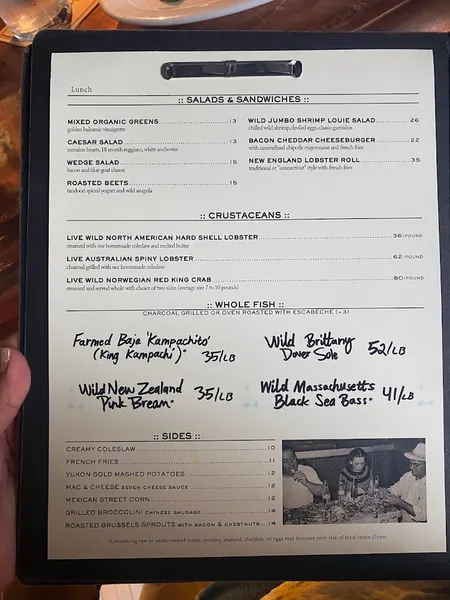 Lunch
:: SALADS & SANDWICHES ::
MIXED ORGANIC GREENS 13
golden balsamic vinaigrette
CAESAR SALAD 13
romaine hearts, 18 month reggiano, white anchovies
WEDGE SALAD 15
bacon and blue goat cheese
ROASTED BEETS 15
tandoori spiced yogurt and wild arugula
WILD JUMBO SHRIMP LOUIE SALAD 26
chilled wild shrimp, deviled eggs, classic garnishes
BACON CHEDDAR CHEESEBURGER 22
with caramelized chipotle mayonnaise and french fries
NEW ENGLAND LOBSTER ROLL 35
traditional or "connecticut" style with french fries
:: CRUSTACEANS ::
LIVE WILD NORTH AMERICAN HARD SHELL LOBSTER 36/POUND
steamed with our homemade coleslaw and melted butter
LIVE AUSTRALIAN SPINY LOBSTER 62/POUND
charcoal grilled with our homemade coleslaw
LIVE WILD NORWEGIAN RED KING CRAB 80/POUND
steamed and served whole with choice of two sides (average size 7 to 10 pounds)
:: WHOLE FISH ::
CHARCOAL GRILLED OR OVEN ROASTED WITH ESCABECHE (+3)
Farmed Baja 'Kampachito'
(King Kampachi)* 35/LB
Wild Brittany
Dover Sole 52/LB
Wild New Zealand
Pink Bream* 35/LB
Wild Massachusetts
Black Sea Bass* 41/LB
:: SIDES ::
CREAMY COLESLAW 10
FRENCH FRIES 11
YUKON GOLD MASHED POTATOES 12
MAC & CHEESE SEVEN CHEESE SAUCE 12
MEXICAN STREET CORN 12
GRILLED BROCCOLINI CHINESE SAUSAGE 14
ROASTED BRUSSELS SPROUTS WITH BACON & CHESTNUTS 14
*Consuming raw or undercooked meats, poultry, seafood, shellfish, or eggs may increase your risk of food borne illness